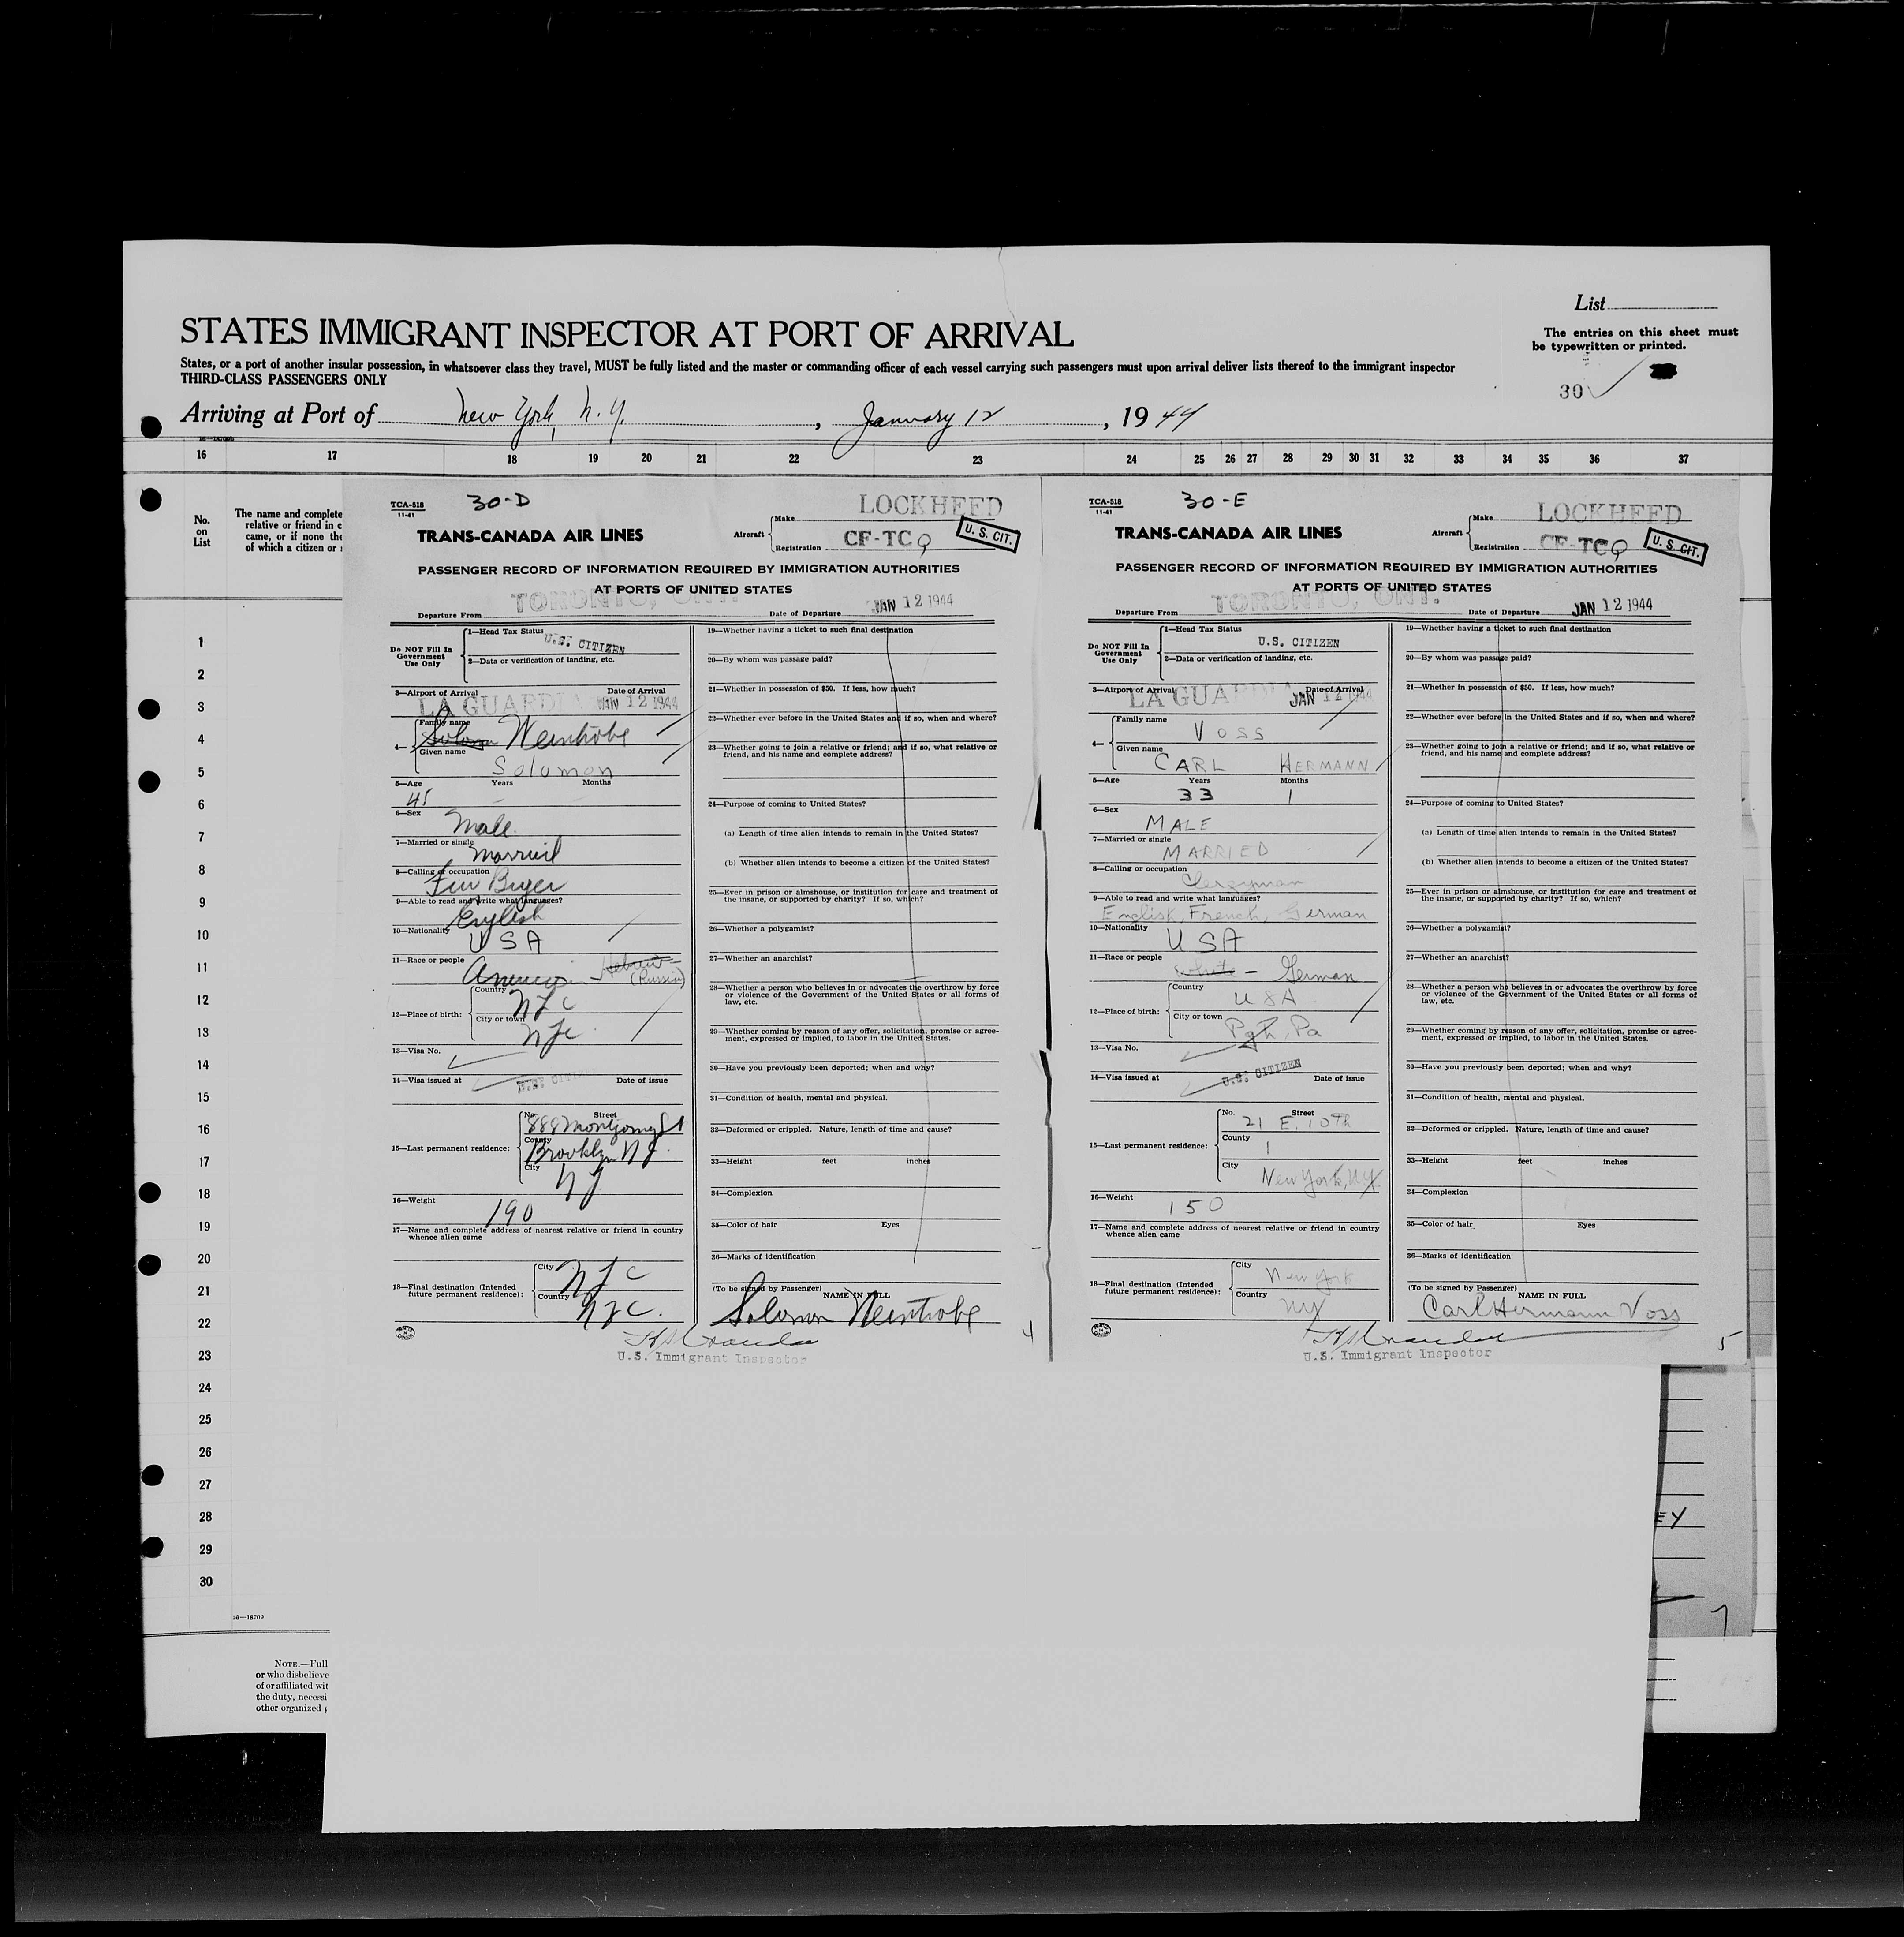 List
STATES IMMIGRANT INSPECTOR AT PORT OF ARRIVAL
The entries on this sheet must
be typewritten or printed.
States, or a port of another insular possession, in whatsoever class they travel, MUST be fully listed and the master or commanding officer of each vessel carrying such passengers must upon arrival deliver lists thereof to the immigrant inspector
THIRD-CLASS PASSENGERS ONLY
30
Arriving at Port of New York, N.Y. , January 12 , 1944
16 17 18 19 20 21 22 23 24 25 26 27 28 29 30 31 32 33 34 35 36 37
No.
on
List
The name and complete
relative or friend in c
came, or if none the
of which a citizen or
1
2
3
4
5
6
7
8
9
10
11
12
13
14
15
16
17
18
19
20
21
22
23
24
25
26
27
28
29
30
16—18709
NOTE.—Full
or who disbelieve
of or affiliated wit
the duty, necessi
other organized g
TCA-518
11-41
30-D
LOCKHEED
TRANS-CANADA AIR LINES
Aircraft
Make
Registration CF-TCQ
U. S. CIT.
PASSENGER RECORD OF INFORMATION REQUIRED BY IMMIGRATION AUTHORITIES
AT PORTS OF UNITED STATES
Departure From TORONTO, ONT.
Date of Departure JAN 12 1944
Do NOT Fill In
Government
Use Only
1—Head Tax Status U.S. CITIZEN
2—Data or verification of landing, etc.
3—Airport of Arrival LA GUARDIA
Date of Arrival JAN 12 1944
4—
Family name Solomon Weintrobe
Given name Solomon
5—Age Years Months
45
6—Sex Male
7—Married or single Married
8—Calling or occupation
Fur Buyer
9—Able to read and write what languages?
English
10—Nationality USA
11—Race or people American - Hebrew
(Russia)
12—Place of birth:
Country NYC
City or town NYC
13—Visa No.
14—Visa issued at U.S. CITIZEN Date of issue
15—Last permanent residence:
No. Street
888 Montgomery St
County
Brooklyn NY
City
NY
16—Weight 190
17—Name and complete address of nearest relative or friend in country
whence alien came
18—Final destination (Intended
future permanent residence):
City NYC
Country NYC.
19—Whether having a ticket to such final destination
20—By whom was passage paid?
21—Whether in possession of $50. If less, how much?
22—Whether ever before in the United States and if so, when and where?
23—Whether going to join a relative or friend; and if so, what relative or
friend, and his name and complete address?
24—Purpose of coming to United States?
(a) Length of time alien intends to remain in the United States?
(b) Whether alien intends to become a citizen of the United States?
25—Ever in prison or almshouse, or institution for care and treatment of
the insane, or supported by charity? If so, which?
26—Whether a polygamist?
27—Whether an anarchist?
28—Whether a person who believes in or advocates the overthrow by force
or violence of the Government of the United States or all forms of
law, etc.
29—Whether coming by reason of any offer, solicitation, promise or agree-
ment, expressed or implied, to labor in the United States.
30—Have you previously been deported; when and why?
31—Condition of health, mental and physical.
32—Deformed or crippled. Nature, length of time and cause?
33—Height feet inches
34—Complexion
35—Color of hair Eyes
36—Marks of identification
(To be signed by Passenger) NAME IN FULL
Solomon Weintrobe
U.S. Immigrant Inspector
4
TCA-518
11-41
30-E
LOCKHEED
TRANS-CANADA AIR LINES
Aircraft
Make
Registration CF-TCQ
U. S. CIT.
PASSENGER RECORD OF INFORMATION REQUIRED BY IMMIGRATION AUTHORITIES
AT PORTS OF UNITED STATES
Departure From TORONTO, ONT.
Date of Departure JAN 12 1944
Do NOT Fill In
Government
Use Only
1—Head Tax Status
U.S. CITIZEN
2—Data or verification of landing, etc.
3—Airport of Arrival LA GUARDIA
Date of Arrival JAN 12 1944
4—
Family name
VOSS
Given name
CARL HERMANN
5—Age Years Months
33 1
6—Sex
MALE
7—Married or single
MARRIED
8—Calling or occupation
Clergyman
9—Able to read and write what languages?
English, French, German
10—Nationality USA
11—Race or people
White - German
12—Place of birth:
Country USA
City or town
Pgh, Pa
13—Visa No.
14—Visa issued at U.S. CITIZEN Date of issue
15—Last permanent residence:
No. Street
21 E. 10th
County
City
New York, NY
16—Weight
150
17—Name and complete address of nearest relative or friend in country
whence alien came
18—Final destination (Intended
future permanent residence):
City New York
Country NY
19—Whether having a ticket to such final destination
20—By whom was passage paid?
21—Whether in possession of $50. If less, how much?
22—Whether ever before in the United States and if so, when and where?
23—Whether going to join a relative or friend; and if so, what relative or
friend, and his name and complete address?
24—Purpose of coming to United States?
(a) Length of time alien intends to remain in the United States?
(b) Whether alien intends to become a citizen of the United States?
25—Ever in prison or almshouse, or institution for care and treatment of
the insane, or supported by charity? If so, which?
26—Whether a polygamist?
27—Whether an anarchist?
28—Whether a person who believes in or advocates the overthrow by force
or violence of the Government of the United States or all forms of
law, etc.
29—Whether coming by reason of any offer, solicitation, promise or agree-
ment, expressed or implied, to labor in the United States.
30—Have you previously been deported; when and why?
31—Condition of health, mental and physical.
32—Deformed or crippled. Nature, length of time and cause?
33—Height feet inches
34—Complexion
35—Color of hair Eyes
36—Marks of identification
(To be signed by Passenger) NAME IN FULL
Carl Hermann Voss
U.S. Immigrant Inspector
5
EY
7